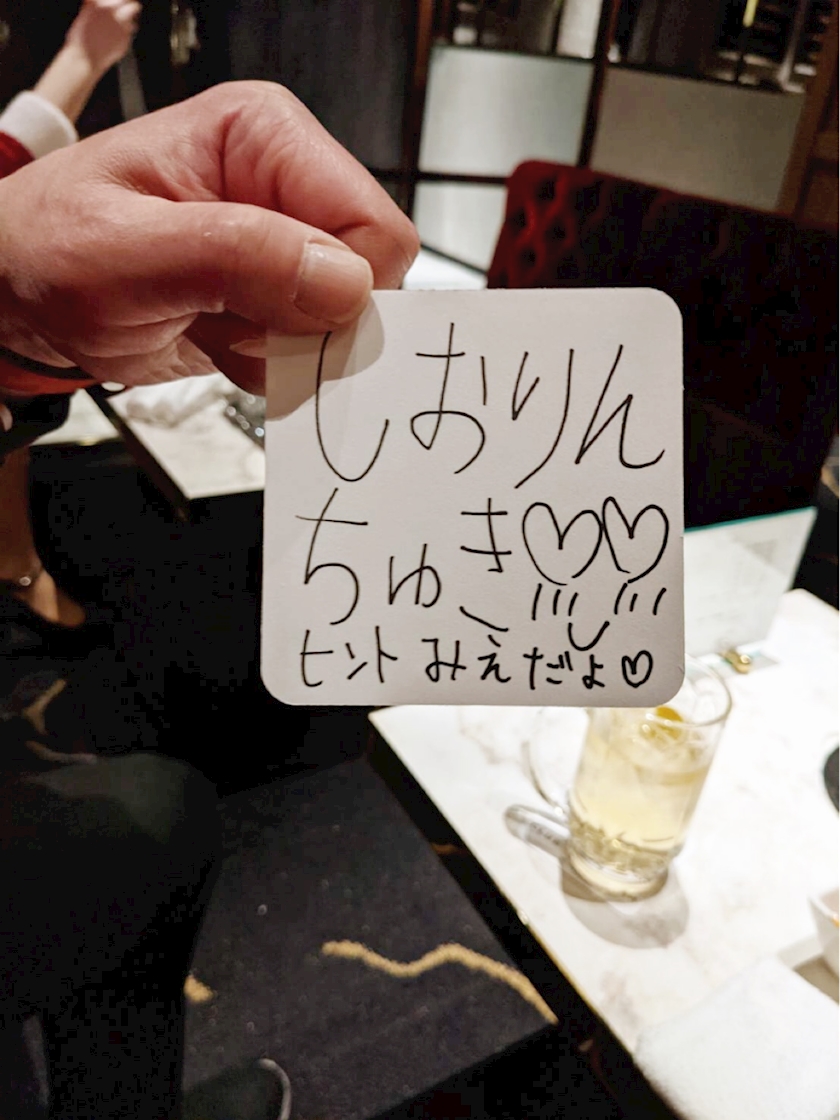 しおりん
ちゅき♡♡
ヒント みえだよ♡